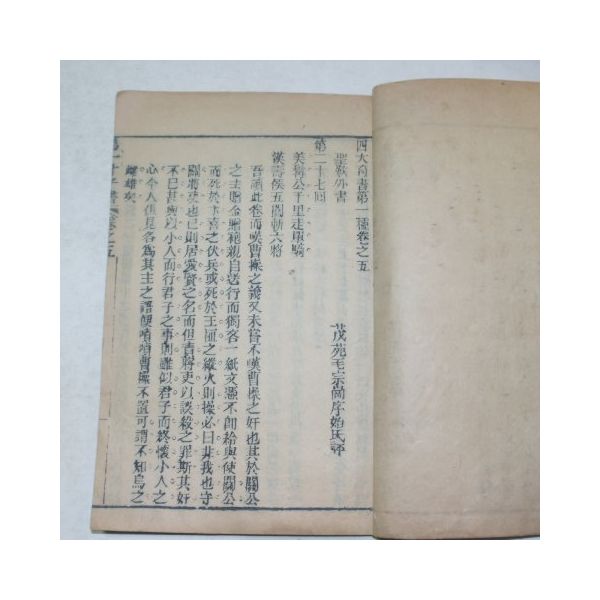 四大奇書第一種卷之五
聖歎外書
茂苑毛宗崗序始氏評
第二十七回
美髯公千里走單騎
漢壽侯五關斬六將
吾讀此卷而嘆曹操之義又未嘗不嘆曹操之奸也其於關公
之去贈金贈袍親自送行而獨吝一紙文憑不卽給與使關公
而死於卞喜之伏兵或死於王植之縱火則操必曰非我也守
關將吏也已則居愛賢之名而但責將吏以誤殺之罪斯其奸
不已甚與以小人而行君子之事則雖似君子而終懷小人之
心今人但見各爲其主之語便嘖嘖曹操不置可謂不知烏之
雌雄矣
第一才子書 卷之五